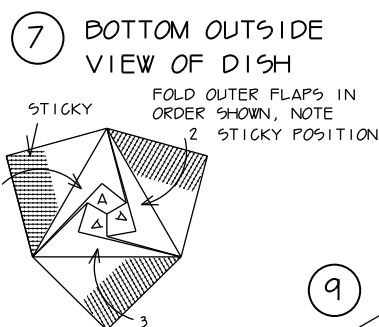 7 BOTTOM OUTSIDE
VIEW OF DISH
STICKY
FOLD OUTER FLAPS IN
ORDER SHOWN, NOTE
2 STICKY POSITION
A
A
A
3
9